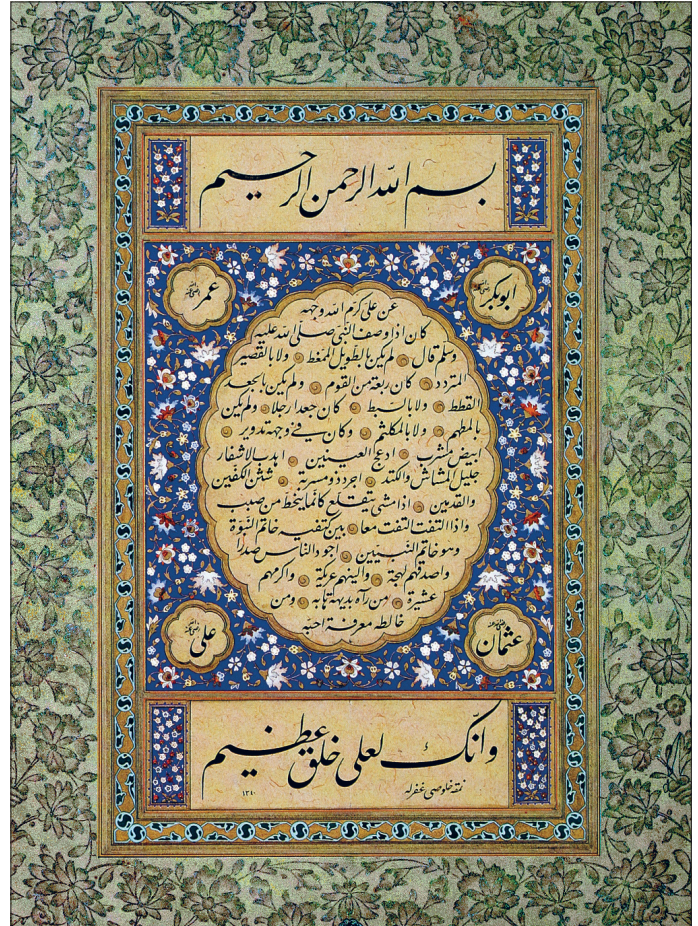 بسم الله الرحمن الرحيم
ابوبكر
عمر
عن على كرم الله وجهه
كان اذا وصف النبى صلى الله عليه
وسلم قال لم يكن بالطويل الممغط ولا بالقصير
المتردد كان ربعة من القوم ولم يكن بالجعد
القطط ولا بالسبط كان جعدا رجلا ولم يكن
بالمطهم ولا بالمكلثم وكان فى وجهه تدوير
ابيض مشرب ادعج العينين اهدب الاشفار
جليل المشاش والكتد اجرد ذو مسربة شثن الكفين
والقدمين اذا مشى يتقلع كانما ينحط من صبب
واذا التفت التفت معا بين كتفيه خاتم النبوة
وهو خاتم النبيين اجود الناس صدرا
واصدقهم لهجة والينهم عريكة واكرمهم
عشيرة من رآه بديهة هابه ومن
خالطه معرفة احبه
عثمان
على
وانك لعلى خلق عظيم
نمقه خلوصى غفر له
١٣٤٠